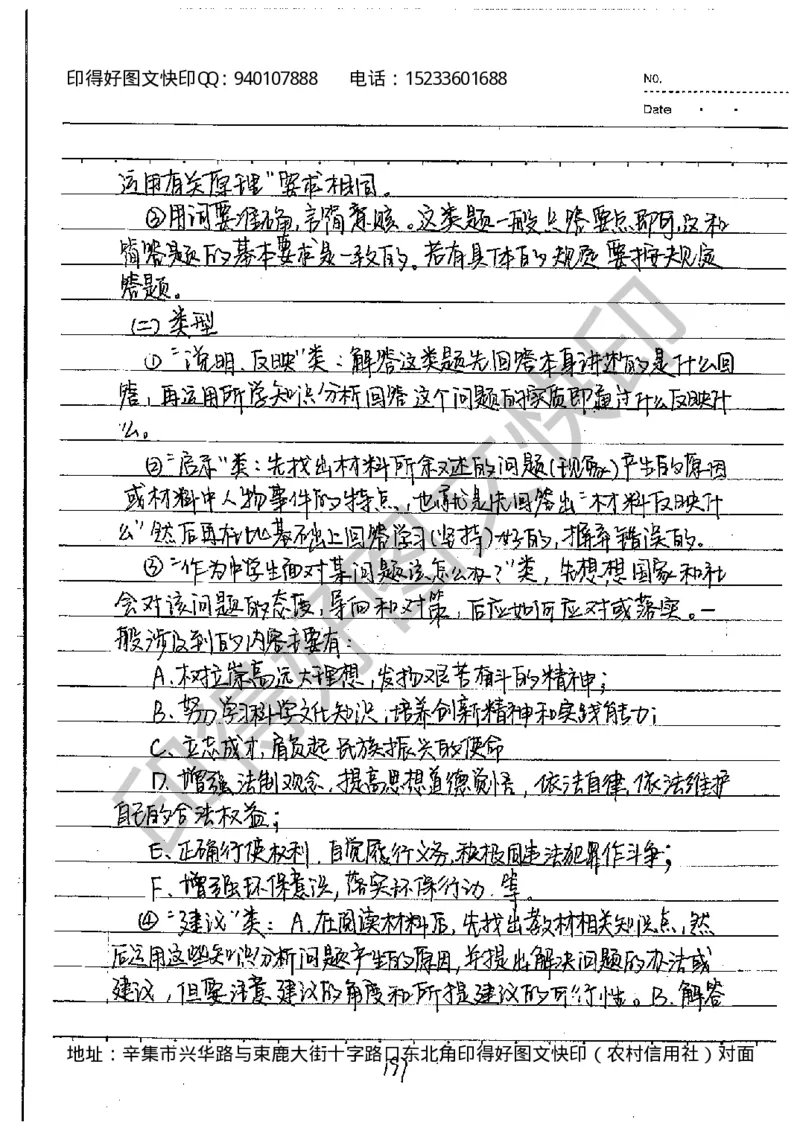 印得好图文快印QQ：940107888 电话：15233601688
NO.
Date
运用有关原理"要求相同。
③用词要准确,言简意赅。这类题一般只答要点即可,这和
简答题的基本要求是一致的。若有具体的规定要按规定
答题。
(二)类型
①"说明、反映"类：解答这类题先回答本身讲述的是什么回
答，再运用所学知识分析回答这个问题的实质即通过什么反映什
么。
②"启示"类：先找出材料所叙述的问题(现象)产生的原因
或材料中人物事件的特点，也就是先回答出"材料反映什
么"然后再在此基础上回答学习(坚持)好的，摒弃错误的。
③"作为中学生面对某问题该怎么办？"类，先想想国家和社
会对该问题的态度，导向和对策，后应如何应对或落实。一
般涉及到的内容主要有：
A、树立崇高远大理想，发扬艰苦奋斗的精神；
B、努力学习科学文化知识，培养创新精神和实践能力；
C、立志成才，肩负起民族振兴的使命
D、增强法制观念、提高思想道德觉悟，依法自律，依法维护
自己的合法权益；
E、正确行使权利、自觉履行义务，积极同违法犯罪作斗争；
F、增强环保意识，落实环保行动、等。
④"建议"类：A、在阅读材料后，先找出教材相关知识点，然
后运用这些知识分析问题产生的原因，并提出解决问题的办法或
建议，但要注意建议的角度和所提建议的可行性。B、解答
地址：辛集市兴华路与束鹿大街十字路口东北角印得好图文快印（农村信用社）对面
191
印得好图文快印